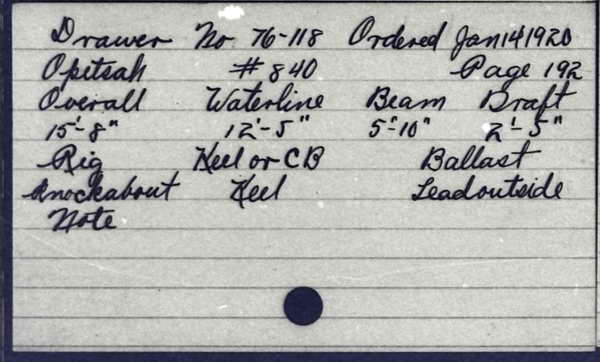 Drawer No 76-118 Ordered Jan 14 1920
Opitsah #840 Page 192
Overall Waterline Beam Draft
15'-8" 12'-5" 5'-10" 2'-5"
Rig Keel or CB Ballast
Knockabout Keel Lead outside
Note